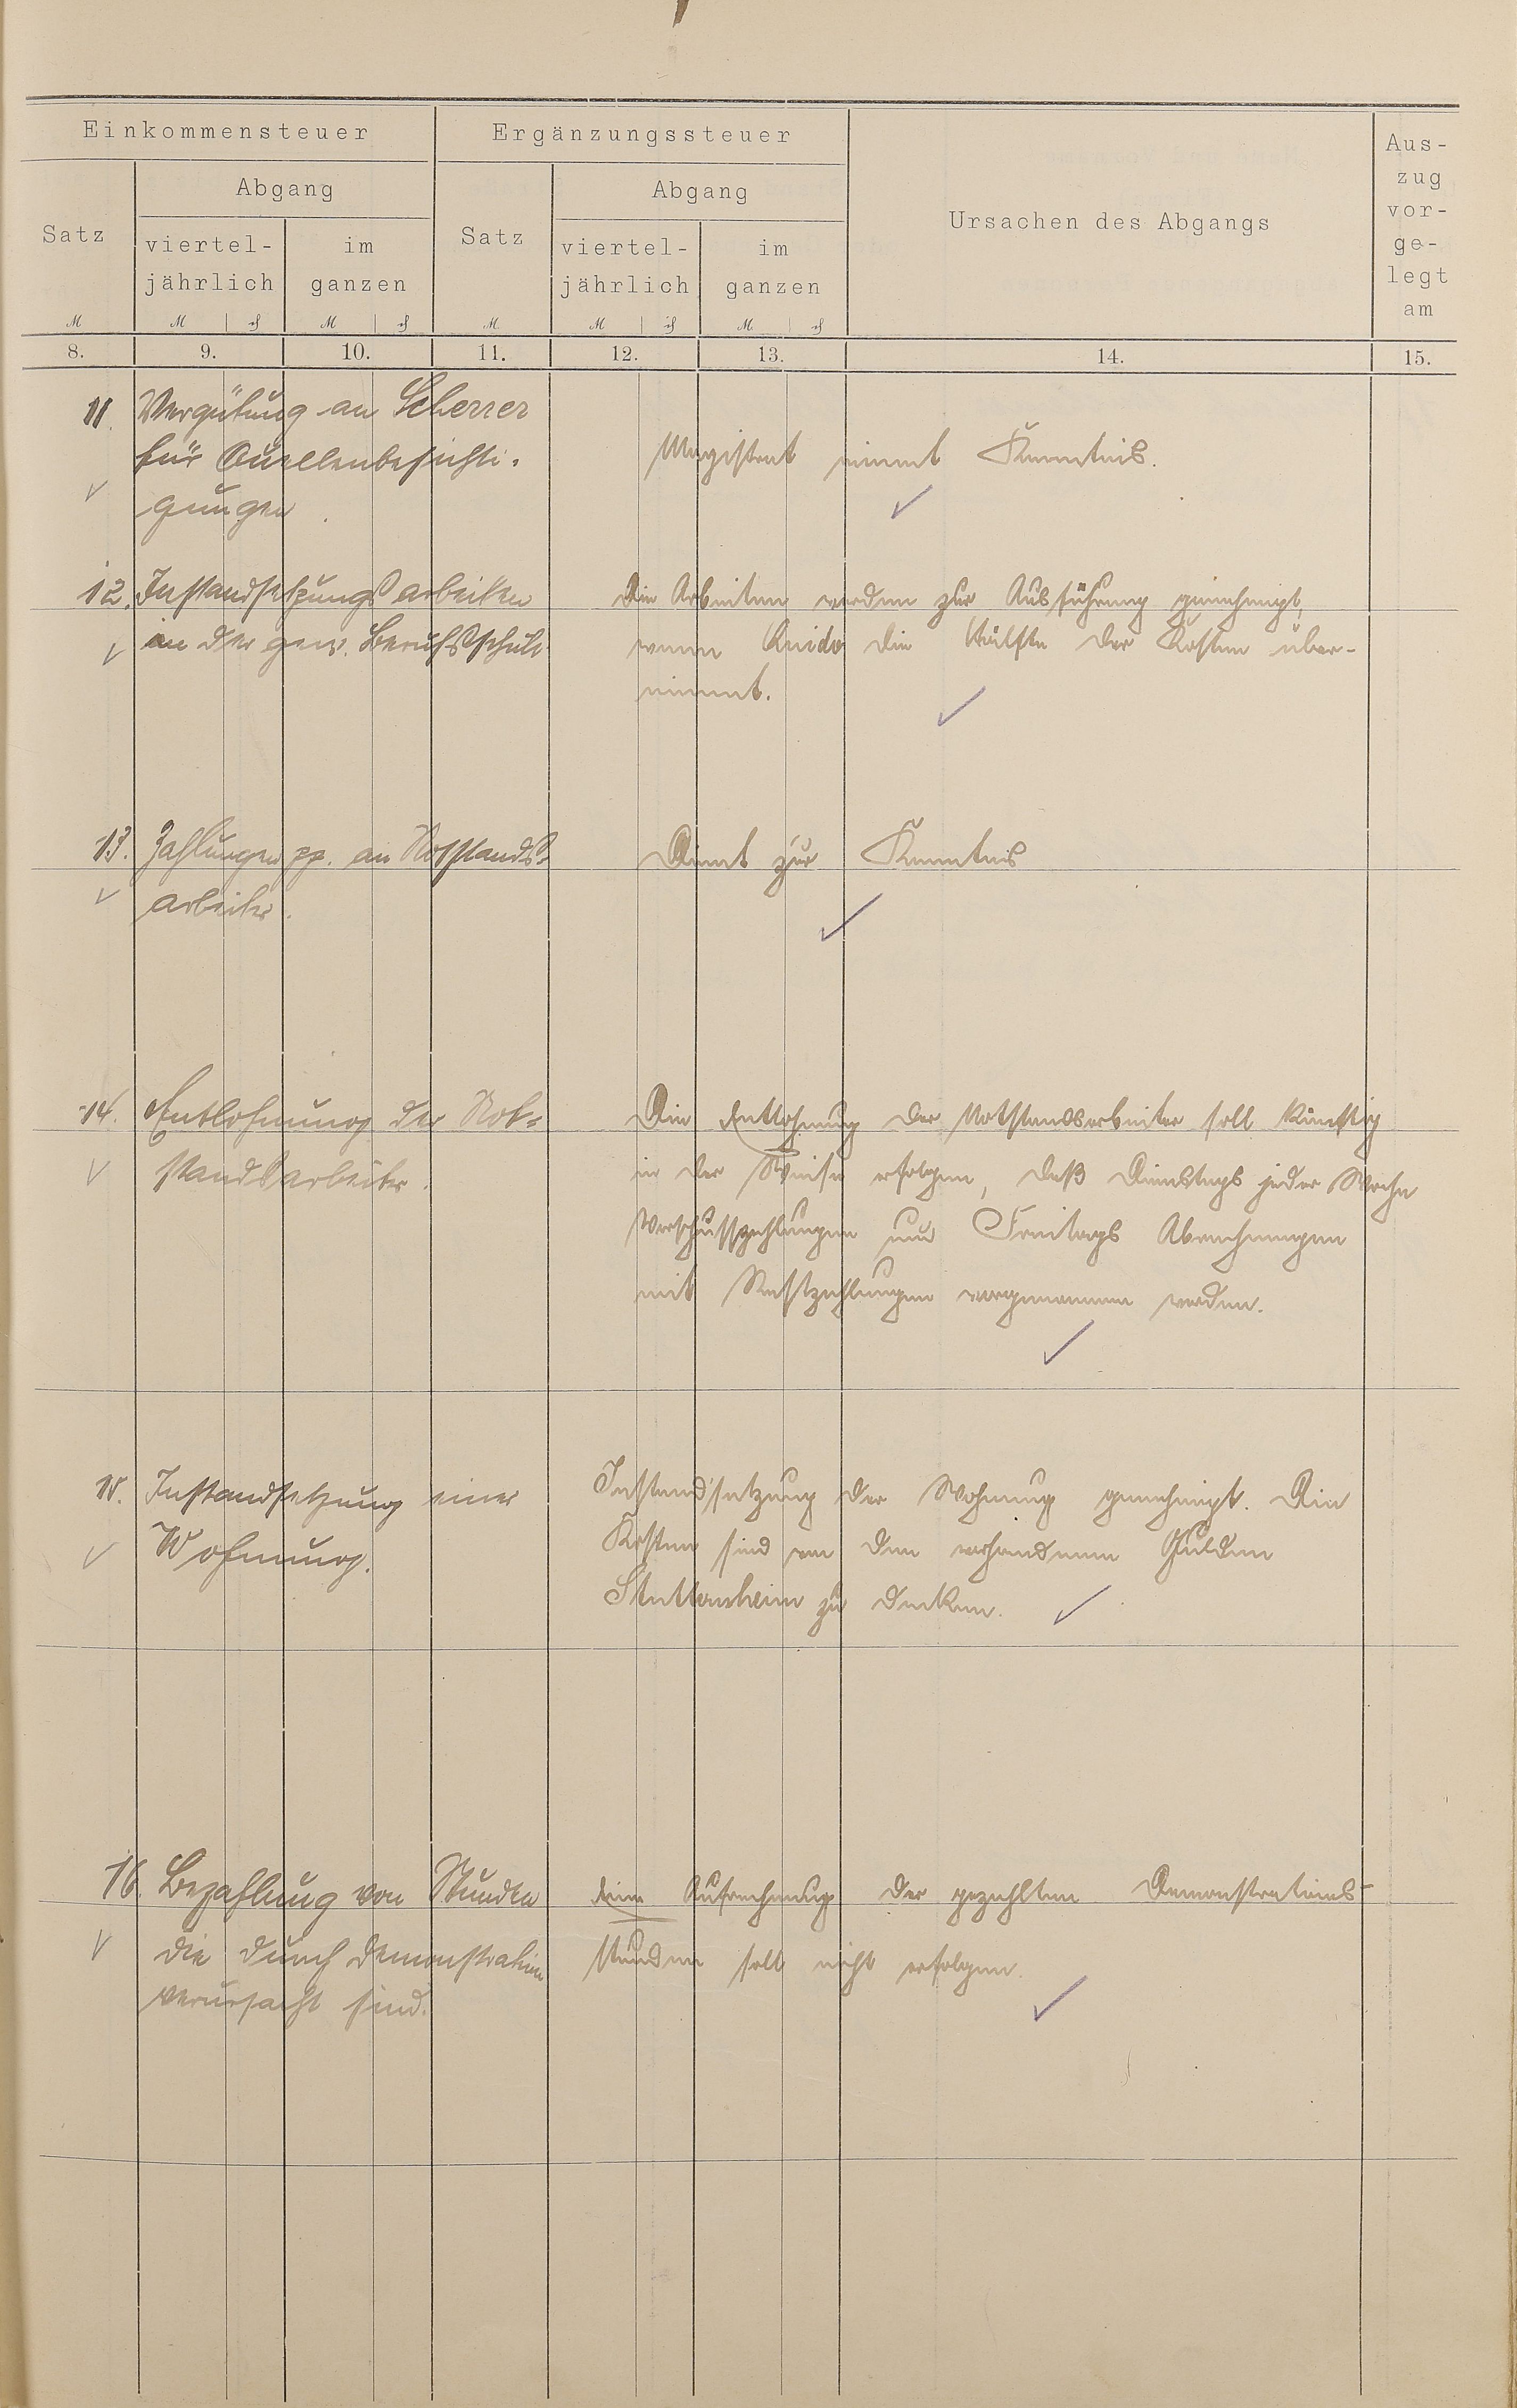 Einkommensteuer
Ergänzungssteuer
Ursachen des Abgangs
Aus-
zug
vor-
ge-
legt
am
Satz
Abgang
viertel-
jährlich
im
ganzen
Satz
Abgang
viertel-
jährlich
im
ganzen
M
M
M
M
M
M
8. 9. 10. 11. 12. 13. 14. 15.
11. Vergütung an Scherrer
für Quellenbesichti-
gungen.
Magistrat nimmt Kenntnis.
12. Instandsetzungsarbeiten
in der gew. Berufsschule
Die Arbeiten werden zur Ausführung genehmigt,
wenn die Hälfte der Kosten über-
nimmt.
13. Zahlungen pp. an Notstands-
arbeiter.
Dient zur Kenntnis
14. Entlohnung der Not-
standsarbeiter.
Die Entlohnung der Notstandsarbeiter soll künftig
in der Weise erfolgen, daß Dienstags jeder Woche
Vorschusszahlungen und Freitags Abrechnungen
mit Restzahlungen vorgenommen werden.
15. Instandsetzung einer
Wohnung.
Instandsetzung der Wohnung genehmigt. Die
Kosten sind von den vorhandenen
zu decken.
16. Bezahlung von Stunden
die durch Demonstration
verursacht sind.
Eine Aufrechnung der gezahlten Demonstrations-
stunden soll nicht erfolgen.